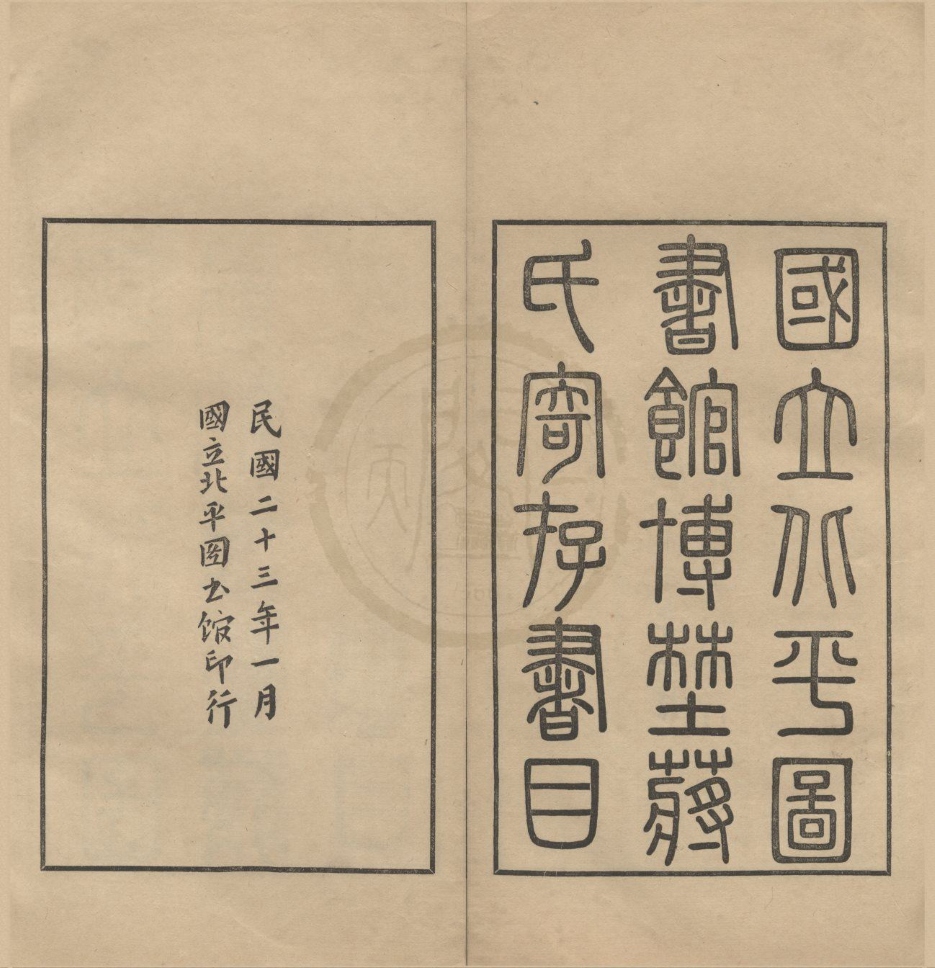 國立北平圖
書館博埜蔣
氏寄存書目
民國二十三年一月
國立北平图书馆印行